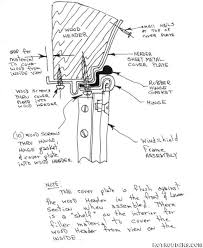 WOOD
HEADER
SMALL NAILS
AT TOP
OF COVER PLATE
GAP FOR
MATERIAL
TO COVER
WOOD FROM
INSIDE VIEW
HEADER
SHEET METAL
COVER PLATE
RUBBER
HINGE
GASKET
HINGE
WOOD SCREWS
THRU COVER
PLATE INTO
WOOD HEADER
(10) WOOD SCREWS
THRU HINGE
HINGE GASKET,
& COVER PLATE
INTO WOOD HEADER.
WINDSHIELD
FRAME
ASSEMBLY
NOTE
THE COVER PLATE IS FLUSH AGAINST
THE WOOD HEADER IN THE FINAL LOWER
SECTION WHEN ASSEMBLED. THERE
IS A "SHELF" ON THE INTERIOR FOR
FILLER MATERIAL TO COVER THE
WOOD HEADER FROM VIEW ON THE
INSIDE